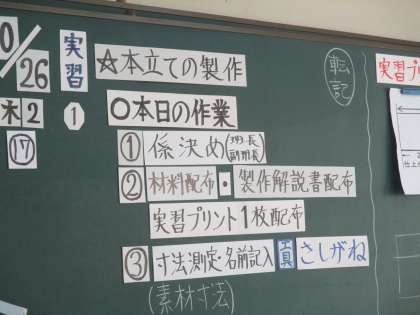 10/26
木2
⑰
実習
①
☆本立ての製作
転記
〇本日の作業
①係決め(班長 副班長)
②材料配布・製作解説書配布
実習プリント1枚配布
③寸法測定・名前記入 工具 さしがね
(素材寸法)
実習プリ